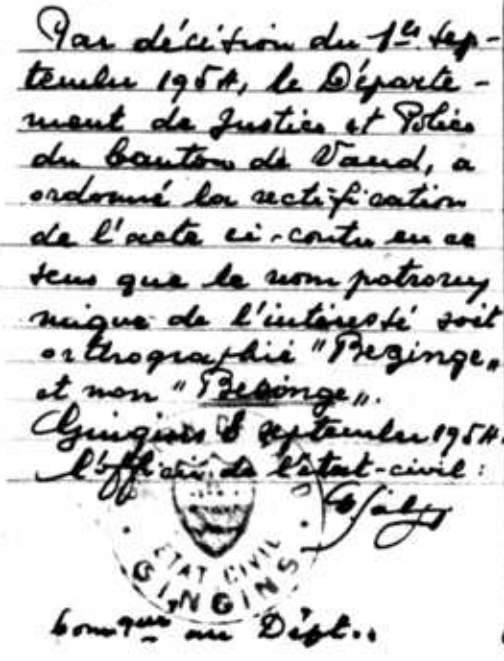 Par décision du 1er sep-
tembre 1954, le Départe-
ment de Justice et Police
du Canton de Vaud, a
ordonné la rectification
de l'acte ci-contre en ce
sens que le nom patrony
mique de l'intéressé soit
orthographié "Bezinge"
et non "Besinge".
Gingins 8 septembre 1954.
L'officier de l'état-civil:
ETAT CIVIL
GINGINS
Comqué au Dépt..